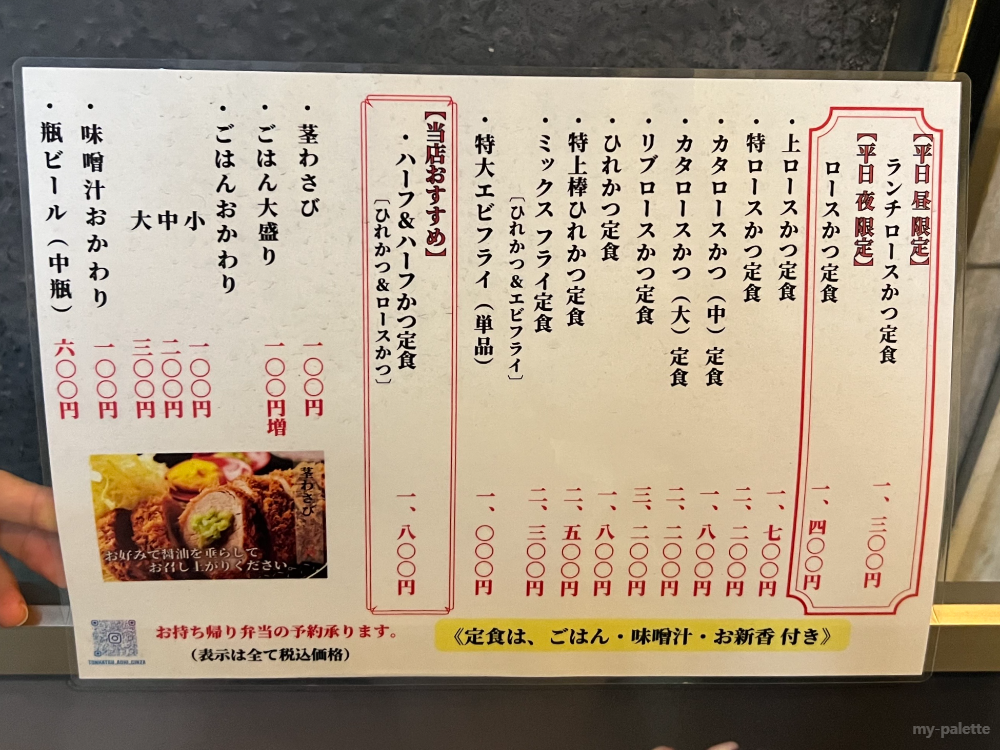 【平日 昼 限定】
ランチロースかつ定食 一、三〇〇円
【平日 夜 限定】
ロースかつ定食 一、四〇〇円
・上ロースかつ定食 一、七〇〇円
・特ロースかつ定食 二、二〇〇円
・カタロースかつ（中）定食 一、八〇〇円
・カタロースかつ（大）定食 二、二〇〇円
・リブロースかつ定食 三、二〇〇円
・ひれかつ定食 一、八〇〇円
・特上棒ひれかつ定食 二、五〇〇円
・ミックス フライ定食 二、三〇〇円
［ひれかつ＆エビフライ］
・特大エビフライ（単品） 一、〇〇〇円
【当店おすすめ】
・ハーフ＆ハーフかつ定食 一、八〇〇円
［ひれかつ＆ロースかつ］
・茎わさび 一〇〇円
・ごはん大盛り 一〇〇円増
・ごはんおかわり
小 一〇〇円
中 二〇〇円
大 三〇〇円
・味噌汁おかわり 一〇〇円
・瓶ビール（中瓶） 六〇〇円
茎わさび
お好みで醤油を垂らして
お召し上がりください。
《定食は、ごはん・味噌汁・お新香 付き》
お持ち帰り弁当の予約承ります。
（表示は全て税込価格）
my-palette